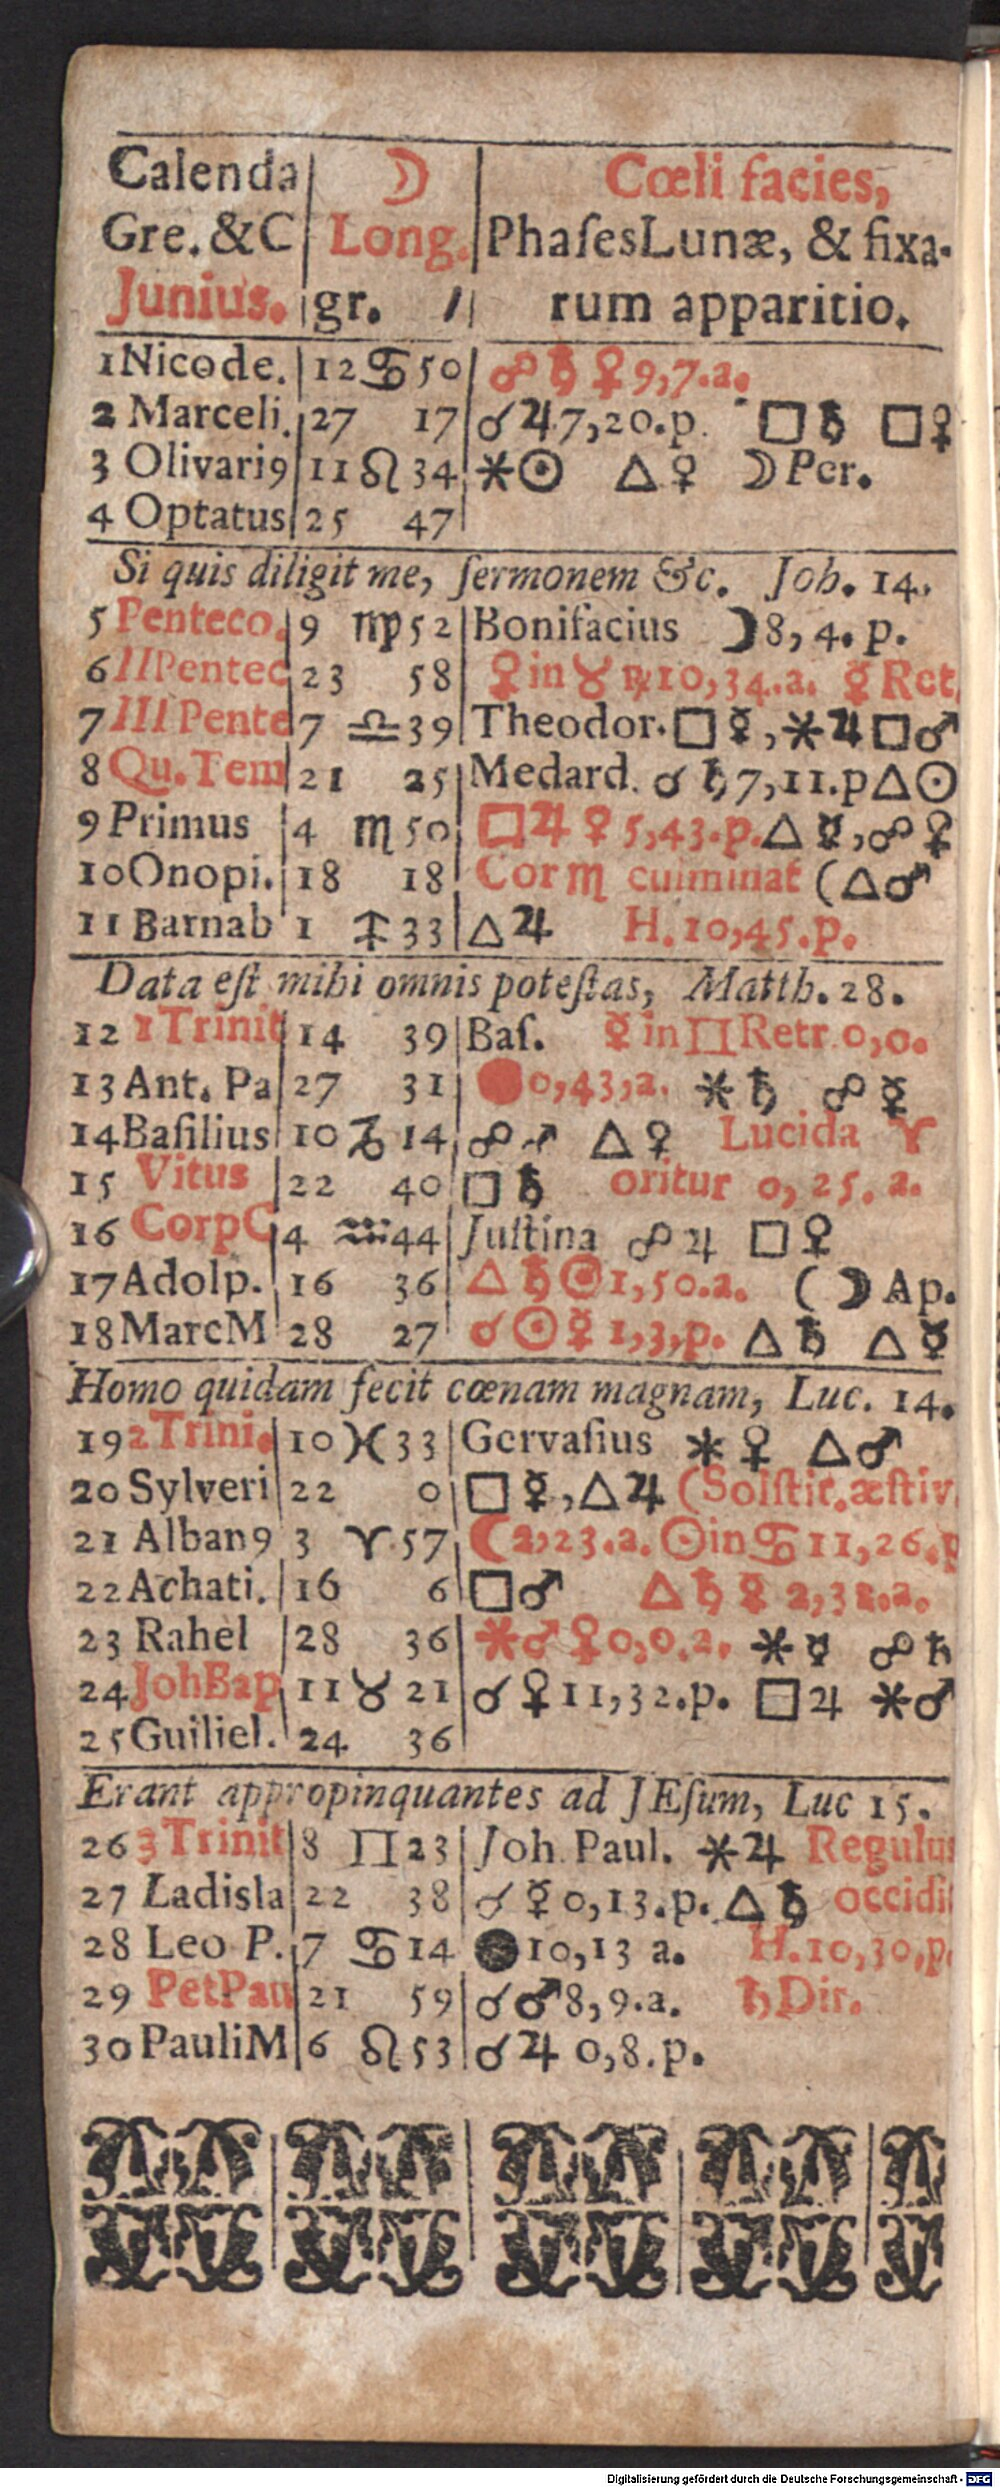 Calenda ☽ Cœli facies,
Gre. &C Long. PhaſesLunæ, & fixa-
Junius. gr. / rum apparitio.
1 Nicode. 12 ♋ 50 ☍ ♄ ♀ 9,7.a.
2 Marceli. 27 17 ☌ ♃ 7,20.p. □ ♄ □ ♀
3 Olivari9 11 ♌ 34 ⚹ ☉ △ ♀ ☽ Per.
4 Optatus 25 47
Si quis diligit me, ſermonem &c. Joh. 14.
5 Penteco. 9 ♍ 52 Bonifacius ☽ 8, 4. p.
6 IIPentec 23 58 ♀ in ♉ ℞ 10,34.a. ☿ Ret.
7 IIIPente 7 ♎ 39 Theodor. □ ☿, ⚹ ♃ □ ♂
8 Qu. Tem 21 25 Medard. ☌ ♄ 7,11.p △ ☉
9 Primus 4 ♏ 50 □ ♃ ♀ 5,43.p. △ ☿, ☍ ♀
10 Onopi. 18 18 Cor ♏ culminat ( △ ♂
11 Barnab 1 ♐ 33 △ ♃ H. 10,45.p.
Data eſt mihi omnis poteſtas, Matth. 28.
12 1 Trinit 14 39 Baſ. ☿ in ♊ Retr. 0,0.
13 Ant. Pa 27 31 ● 0,43,a. ⚹ ♄ ☍ ☿
14 Baſilius 10 ♑ 14 ☍ ♂ △ ♀ Lucida ♈
15 Vitus 22 40 □ ♄ oritur 0, 25. a.
16 CorpC 4 ♒ 44 Juſtina ☍ ♃ □ ♀
17 Adolp. 16 36 △ ♄ ☉ 1,50.a. ( ☽ Ap.
18 MarcM 28 27 ☌ ☉ ☿ 1,3,p. △ ♄ △ ☿
Homo quidam fecit cœnam magnam, Luc. 14.
19 2 Trini. 10 ♓ 33 Gervaſius ⚹ ♀ △ ♂
20 Sylveri 22 0 □ ☿, △ ♃ (Solſtit. æſtiv.
21 Alban9 3 ♈ 57 ☾ 2,23.a. ☉ in ♋ 11,26.p
22 Achati. 16 6 □ ♂ △ ♄ ☿ 2,38.a.
23 Rahel 28 36 ⚹ ♂ ♀ 0,0.a. ⚹ ☿ ☍ ♄
24 JohBap 11 ♉ 21 ☌ ♀ 11,32.p. □ ♃ ⚹ ♂
25 Guiliel. 24 36
Erant appropinquantes ad JEſum, Luc 15.
26 3 Trinit 8 ♊ 23 Joh. Paul. ⚹ ♃ Regulus
27 Ladisla 22 38 ☌ ☿ 0,13.p. △ ♄ occidit
28 Leo P. 7 ♋ 14 ● 10,13 a. H. 10,30,p.
29 PetPau 21 59 ☌ ♂ 8,9.a. ♄ Dir.
30 PauliM 6 ♌ 53 ☌ ♃ 0,8.p.
Digitalisierung gefördert durch die Deutsche Forschungsgemeinschaft - DFG